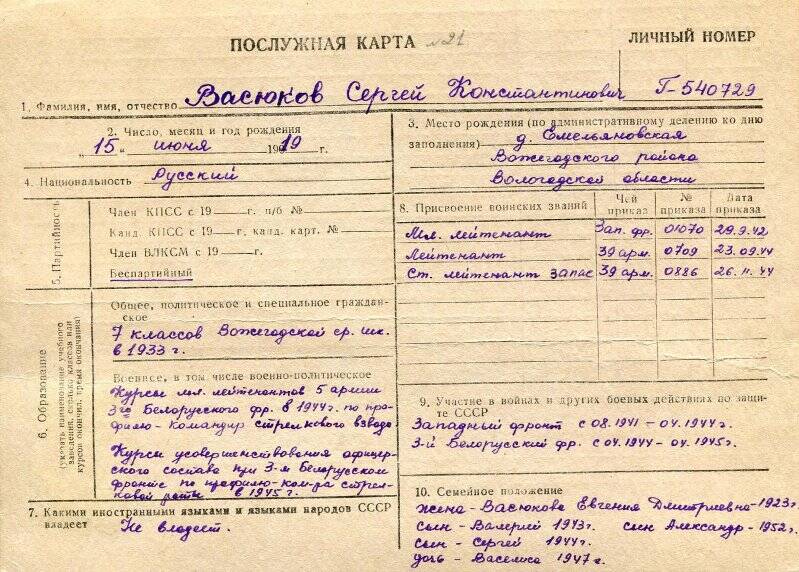 ПОСЛУЖНАЯ КАРТА №21
ЛИЧНЫЙ НОМЕР
1. Фамилия, имя, отчество Васюков Сергей Константинович Г-540729
2. Число, месяц и год рождения
„15“ июня 1919 г.
3. Место рождения (по административному делению ко дню
заполнения) д. Емельяновская
Вожегодского района
Вологодской области
4. Национальность Русский
5. Партийность
Член КПСС с 19 г. п/б №
Канд. КПСС с 19 г. канд. карт. №
Член ВЛКСМ с 19 г.
Беспартийный
8. Присвоение воинских званий Чей приказ № приказа Дата приказа
Мл. лейтенант Зап. фр. 01070 29.9.42
Лейтенант 39 арм. 0709 23.09.44
Ст. лейтенант запас 39 арм. 0886 26.11.44
6. Образование
(указать наименование учебного
заведения, сколько классов или
курсов окончил, время окончания)
Общее, политическое и специальное граждан-
ское
7 классов Вожегодской ср. шк.
в 1933 г.
Военное, в том числе военно-политическое
Курсы мл. лейтенантов 5 армии
3го Белорусского фр. в 1944 г. по про-
филю - командир стрелкового взвода.
Курсы усовершенствования офицер-
ского состава при 3-м Белорусском
фронте по профилю - ком-ра стрел-
ковой роты в 1945 г.
7. Какими иностранными языками и языками народов СССР
владеет Не владеет.
9. Участие в войнах и других боевых действиях по защи-
те СССР
Западный фронт с 08.1941 - 04.1944 г.
3-й Белорусский фр. с 04.1944 - 04.1945 г.
10. Семейное положение
жена - Васюкова Евгения Дмитриевна - 1923 г.
сын - Валерий 1943 г. сын Александр - 1952 г.
сын - Сергей 1944 г.
дочь - Василиса 1947 г.